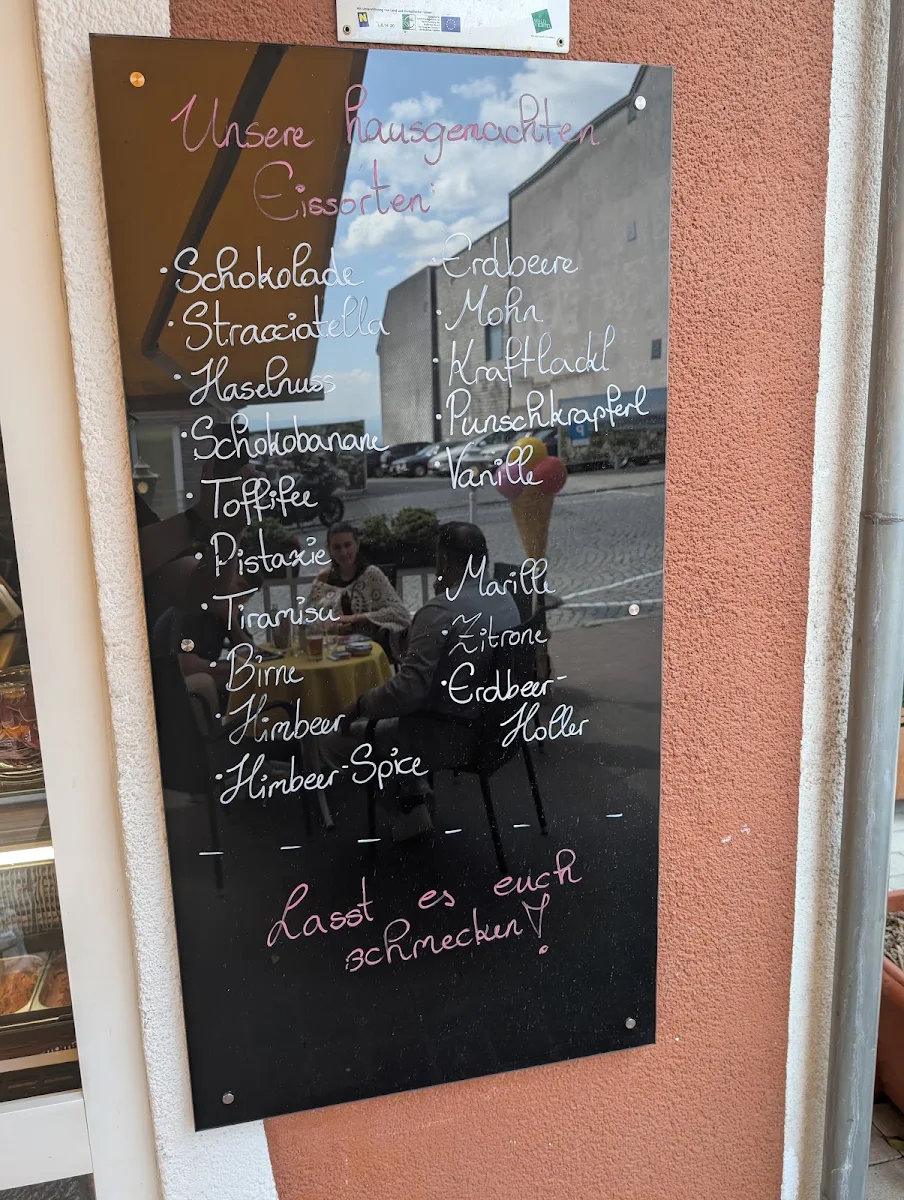 Unsere hausgemachten
Eissorten:
· Schokolade
· Stracciatella
· Haselnuss
· Schokobanane
· Toffifee
· Pistazie
· Tiramisu
· Birne
· Himbeer
· Himbeer-Spice
· Erdbeere
· Mohn
· Kraftlackl
· Punschkrapferl
· Vanille
· Marille
· Zitrone
· Erdbeer-
Holler
Lasst es euch
schmecken!